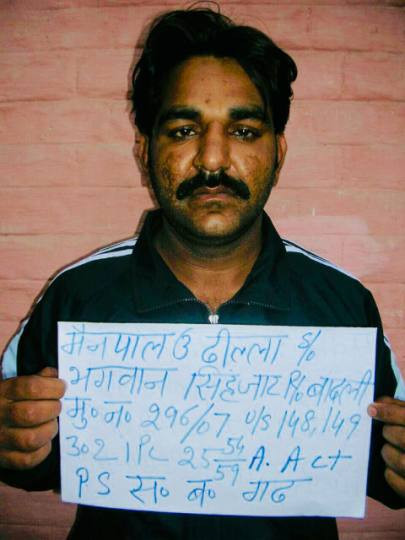 मैनपाल उ ढील्ला s/o
भगवान सिंह जाट r/o बादली
मु० न० 296/07 u/s 148, 149
302 IPC 25-54-59 A. Act
P.S स० ब० गढ